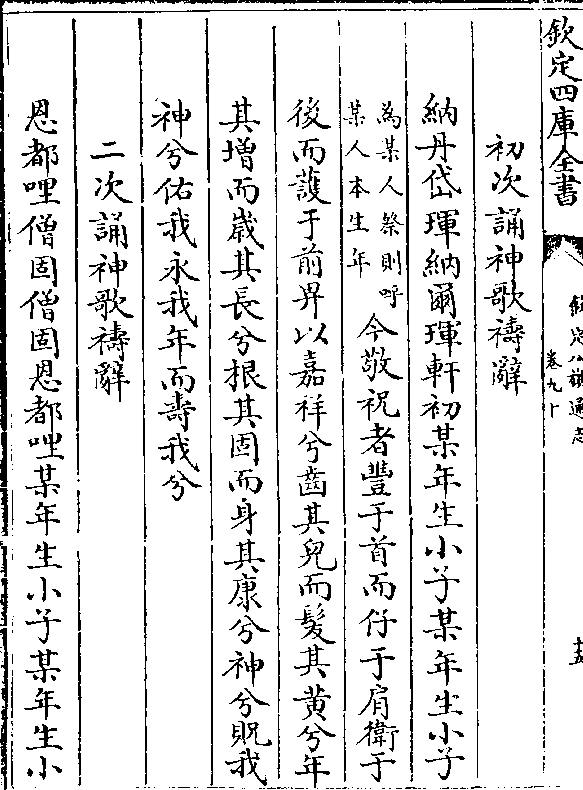 欽定四庫全書
欽定八旗通志
卷九十
十五
初次誦神歌禱辭
納丹岱琿納爾琿軒初某年生小子某年生小子
為某人祭則呼
某人本生年
今敬祝者豐于首而仔于肩衛于
後而護于前畀以嘉祥兮齒其兒而髮其黃兮年
其增而歲其長兮根其固而身其康兮神兮貺我
神兮佑我永我年而壽我兮
二次誦神歌禱辭
恩都哩僧固僧固恩都哩某年生小子某年生小